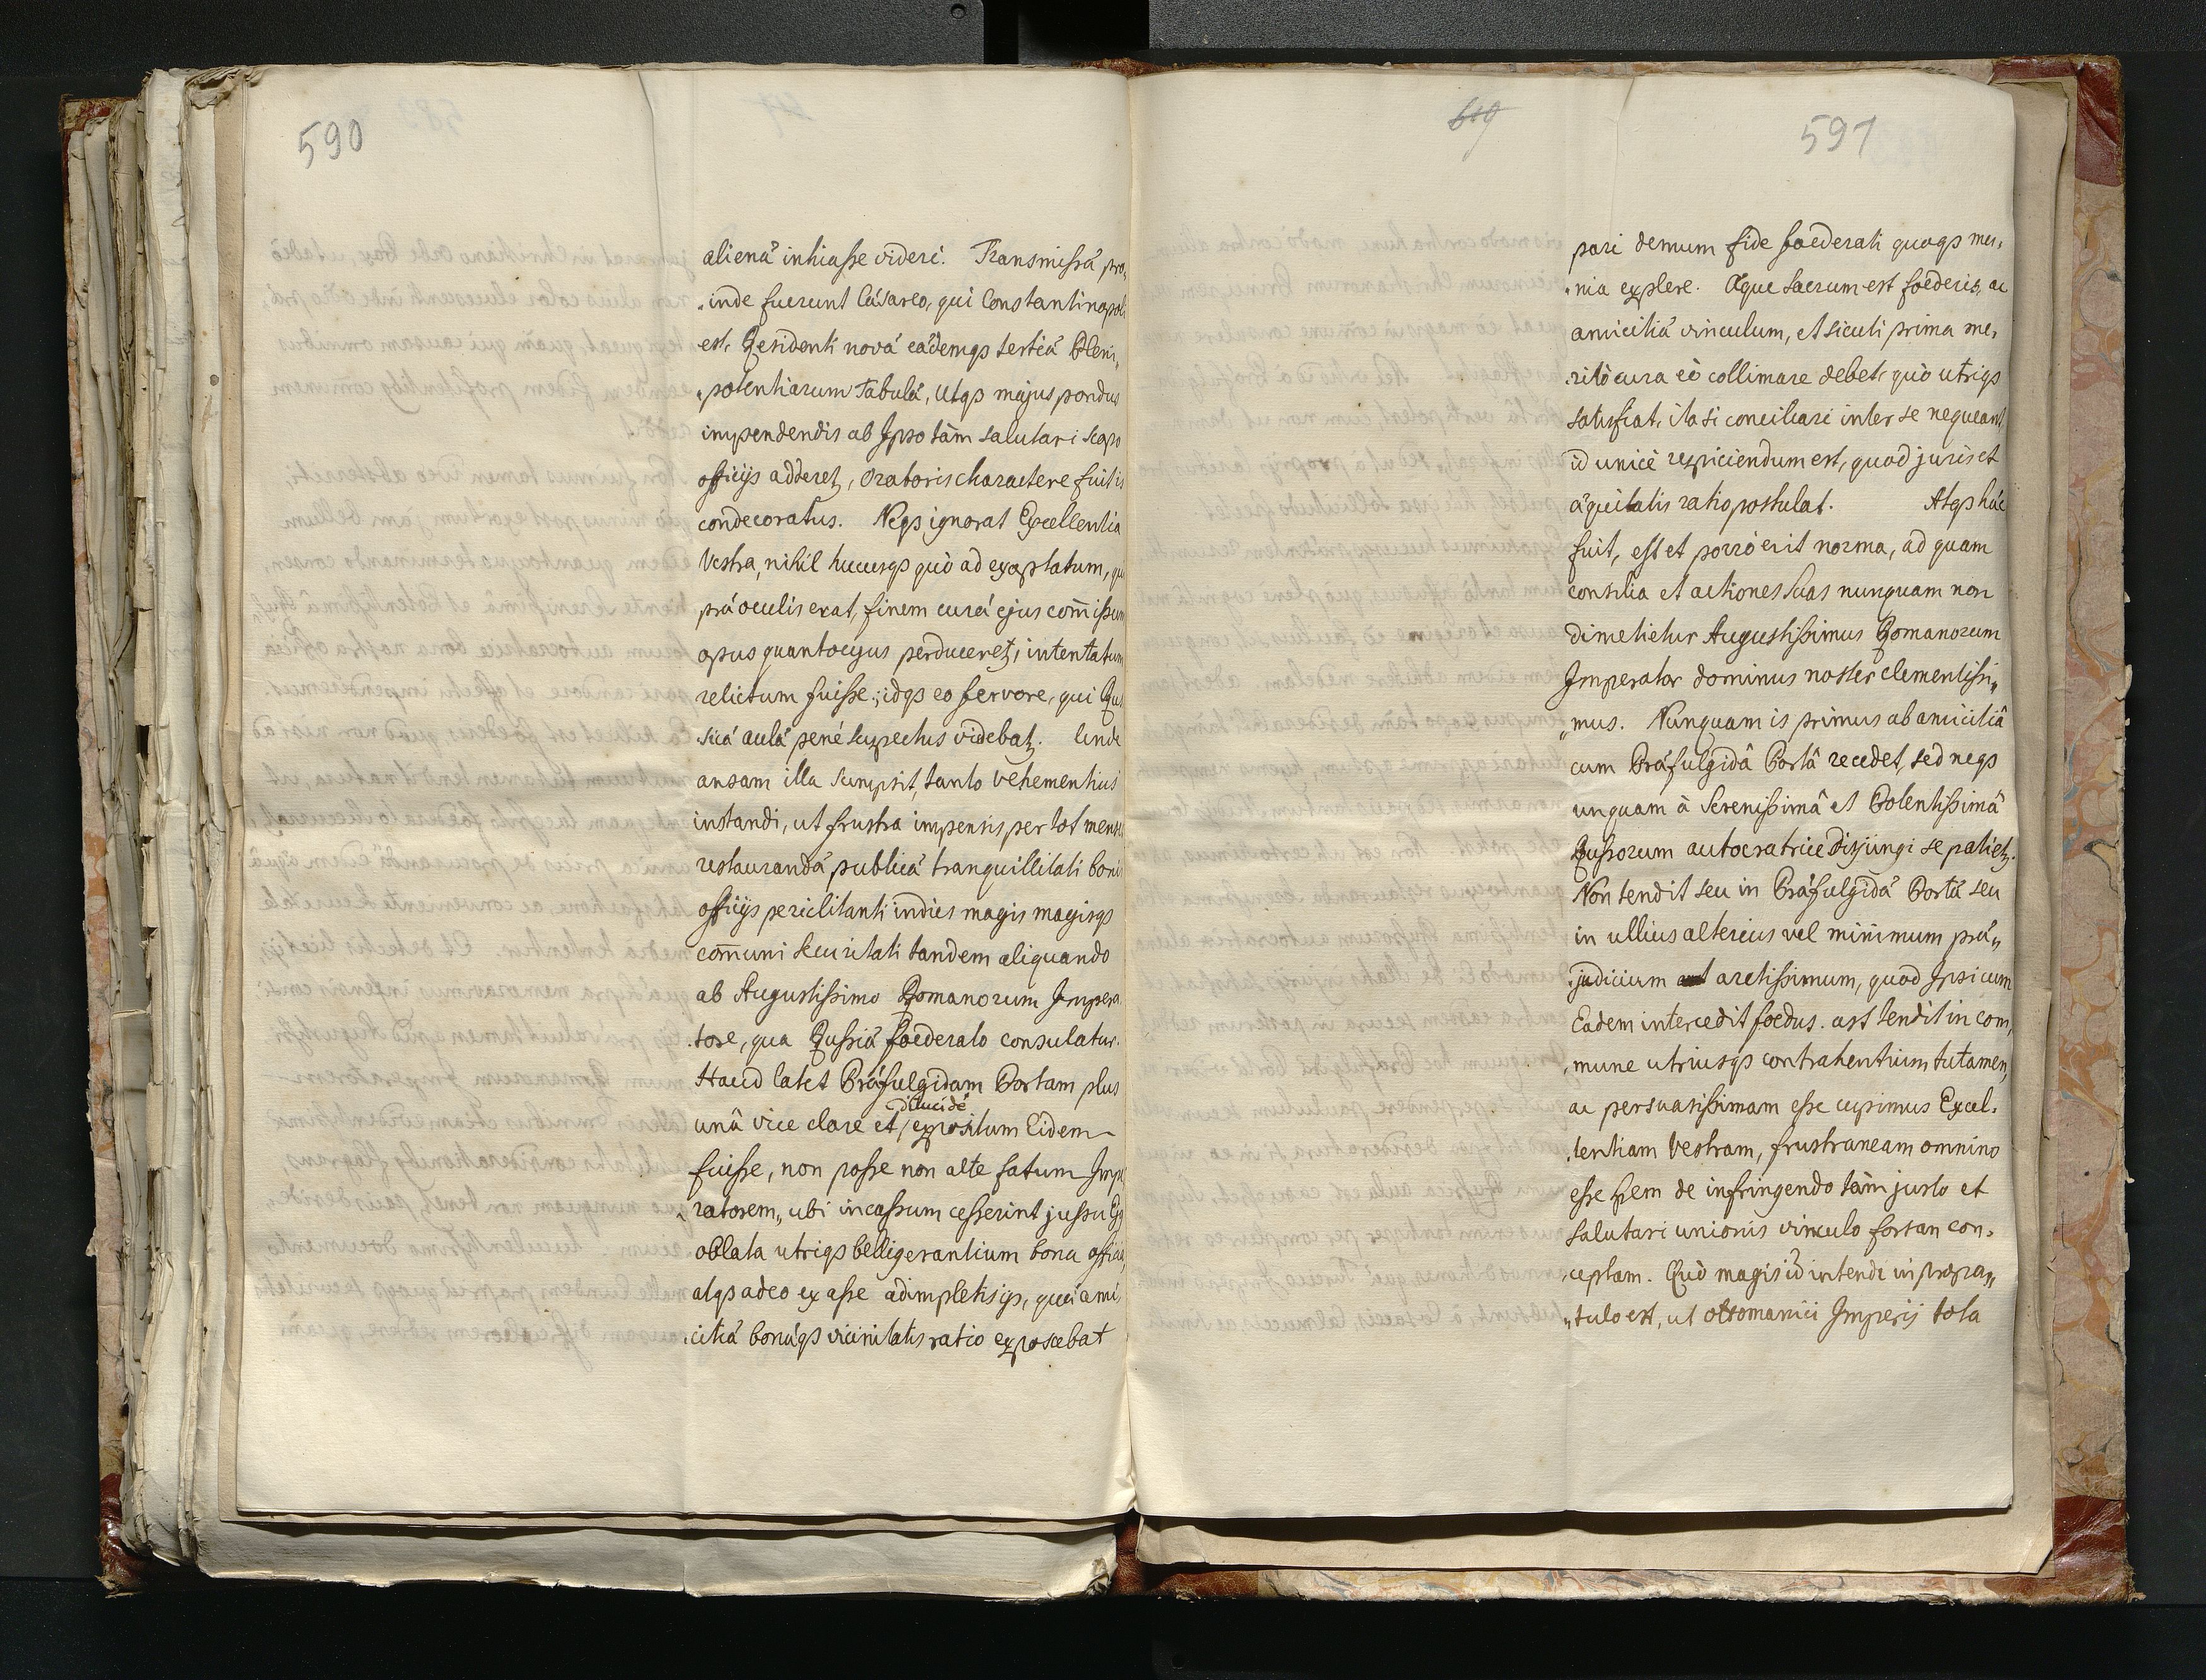 590
alienâ inhiasse videri. Transmissâ pro„
„inde fuerunt Cæsareo, qui Constantinopoli
est, Residenti novâ eâdemqs tertiâ Pleni„
„potentiarum Tabulâ, utqs majus pondus
impendendis ab Ipso tàm salutari scopo
officijs adderet, oratoris charactere fuit is
condecoratus. Neqs ignorat Excellentia
Vestra, nihil hucusqs quò ad exoptatum, qui
præ oculis erat, finem curæ ejus com̄issum
opus quantocyus perduceret, intentatum
relictum fuisse; idqs eo fervore, qui Rus
sicæ aulæ penè suspectus videbat. Unde
ansam illa sumpsit, tanto vehementius
instandi, ut frustra impensis per tot menses
restaurandæ publicæ tranquillitati bonis
officijs periclitanti indies magis magisqs
com̄uni securitati tandem aliquando
ab Augustissimo Romanorum Impera„
„tore, qua Russiæ foederato consulatur.
Haud latet Præfulgidam Portam plus
unâ vice clare et dilucidè expositum Eidem
fuisse, non posse non alte fatum Impe„
„ratorem, ubi incassum cesserint jussu Ejus
oblata utriqs belligerantium bona officia,
atqs adeo ex asse adimpletis ijs, quæ ami„
„citiæ bonæqs vicinitatis ratio exposcebat
619
591
pari demum fide foederati quoqs mu„
„nia explere. Æque sacrum est foederis, ac
amicitiæ vinculum, et siculi prima me„
„ritò cura eò collimare debet, quò utriqs
satisfiat, ita si conciliari inter se nequeant,
id unicè respiciendum est, quod juris et
æquitatis ratio postulat. Atqs hæc
fuit, est et porrò erit norma, ad quam
consilia et actiones suas nunquam non
dimetietur Augustissimus Romanorum
Imperator dominus noster clementissi„
„mus. Nunquam is primus ab amicitiâ
cum Præfulgidâ Portâ recedet, sed neqs
unquam à Serenissimâ et Potentissimâ
Russorum autocratrice disjungi se patiet.
Non tendit seu in Præfulgidæ Portæ seu
in ullius alterius vel minimum præ„
„judicium arctissimum, quod Ipsi cum
Eadem intercedit foedus. ast tendit in com„
„mune utriusqs contrahentium tutamen,
ac persuasissimam esse cupimus Excel„
„lentiam Vestram, frustraneam omnino
esse spem de infringendo tàm justo et
salutari unionis vinculo forsan con„
„ceptam. Quò magis id intende in propa„
„tulo est, ut ottomanici Imperij tota